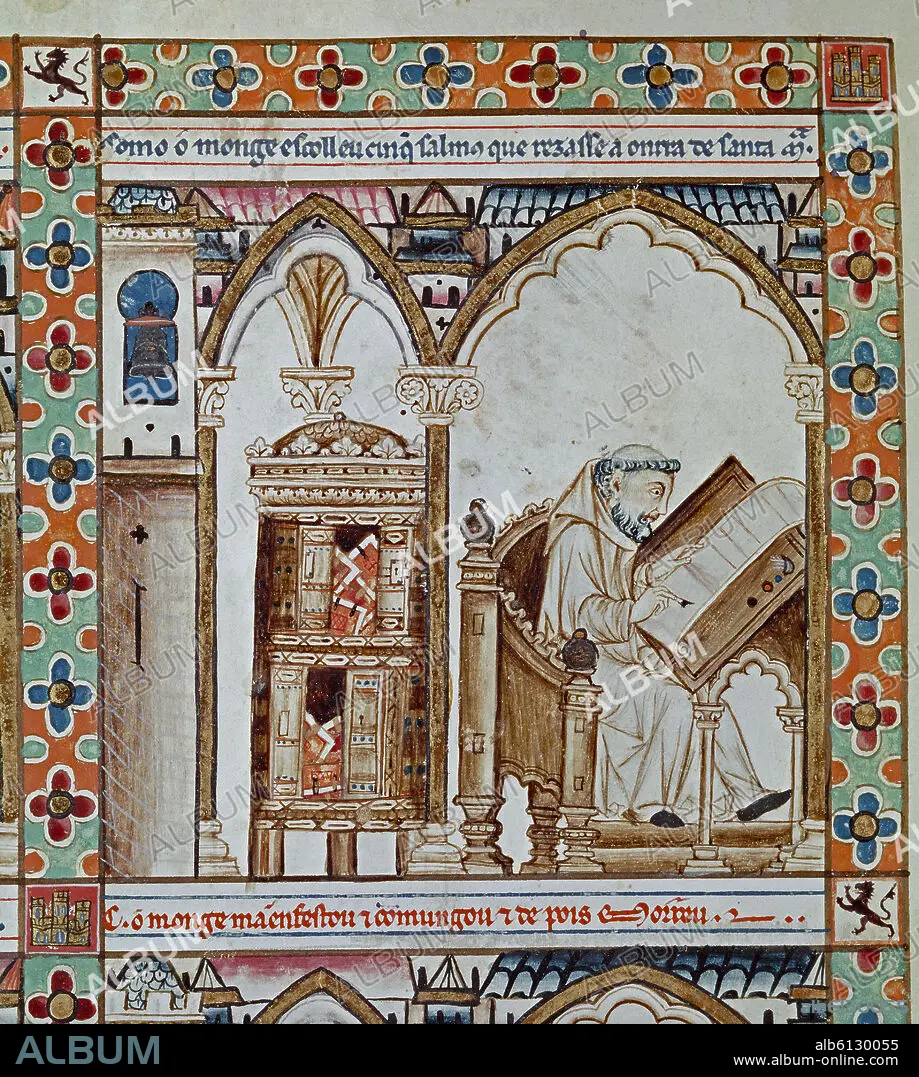 Como o monge escolleu cinq̃ salmos que rezasse a onrra de santa M̃.
C. õ monge mãenfestou ⁊ cõmungou ⁊ de pois morreu.
ALBUM
alb6130055
www.album-online.com